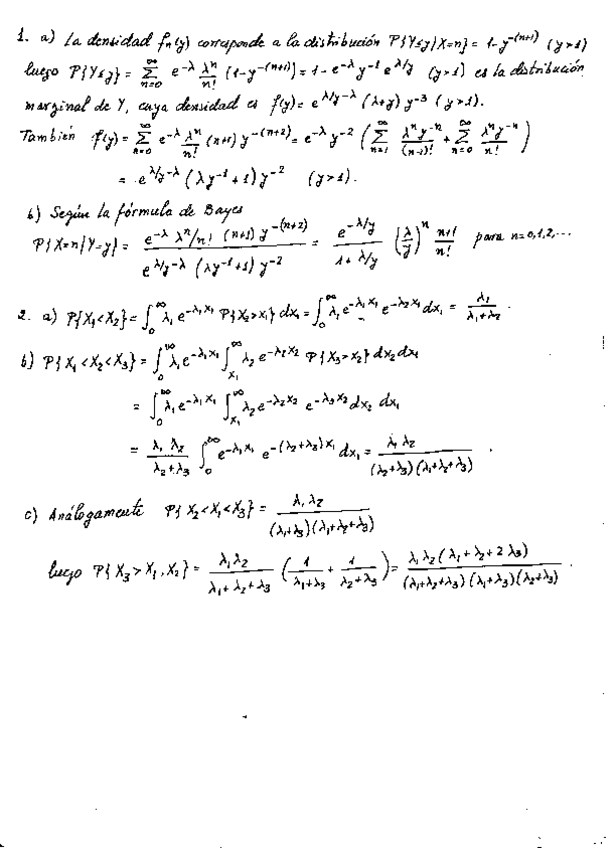 1. a) La densidad fₙ(y) corresponde a la distribución P{Y≤y|X=n} = 1-y^-(n+1) (y>1)
luego P{Y≤y} = ∑_{n=0}^{∞} e^-λ λ^n/n! (1-y^-(n+1)) = 1-e^-λ y^-1 e^λ/y (y>1) es la distribución
marginal de Y, cuya densidad es f(y) = e^λ/y-λ (λ+y) y^-3 (y>1).
También f(y) = ∑_{n=0}^{∞} e^-λ λ^n/n! (n+1) y^-(n+2) = e^-λ y^-2 (∑_{n=1}^{∞} λ^n y^-n/(n-1)! + ∑_{n=0}^{∞} λ^n y^-n/n!)
= e^λ/y-λ (λy^-1+1) y^-2 (y>1).
b) Según la fórmula de Bayes
P{X=n|Y=y} = e^-λ λ^n/n! (n+1) y^-(n+2) / e^λ/y-λ (λy^-1+1) y^-2 = e^-λ/y / 1+λ/y (λ/y)^n n+1/n! para n=0,1,2,...
2. a) P{X₁<X₂} = ∫_0^∞ λ₁e^-λ₁x₁ P{X₂>x₁} dx₁ = ∫_0^∞ λ₁e^-λ₁x₁ e^-λ₂x₁ dx₁ = λ₁/λ₁+λ₂.
b) P{X₁<X₂<X₃} = ∫_0^∞ λ₁e^-λ₁x₁ ∫_{x₁}^∞ λ₂e^-λ₂x₂ P{X₃>x₂} dx₂dx₁
= ∫_0^∞ λ₁e^-λ₁x₁ ∫_{x₁}^∞ λ₂e^-λ₂x₂ e^-λ₃x₂ dx₂ dx₁
= λ₁λ₂/λ₂+λ₃ ∫_0^∞ e^-λ₁x₁ e^-(λ₂+λ₃)x₁ dx₁ = λ₁λ₂/(λ₂+λ₃)(λ₁+λ₂+λ₃).
c) Análogamente P{X₂<X₁<X₃} = λ₁λ₂/(λ₁+λ₃)(λ₁+λ₂+λ₃)
luego P{X₃>X₁,X₂} = λ₁λ₂/λ₁+λ₂+λ₃ (1/λ₁+λ₃ + 1/λ₂+λ₃) = λ₁λ₂(λ₁+λ₂+2λ₃)/(λ₁+λ₂+λ₃)(λ₁+λ₃)(λ₂+λ₃).